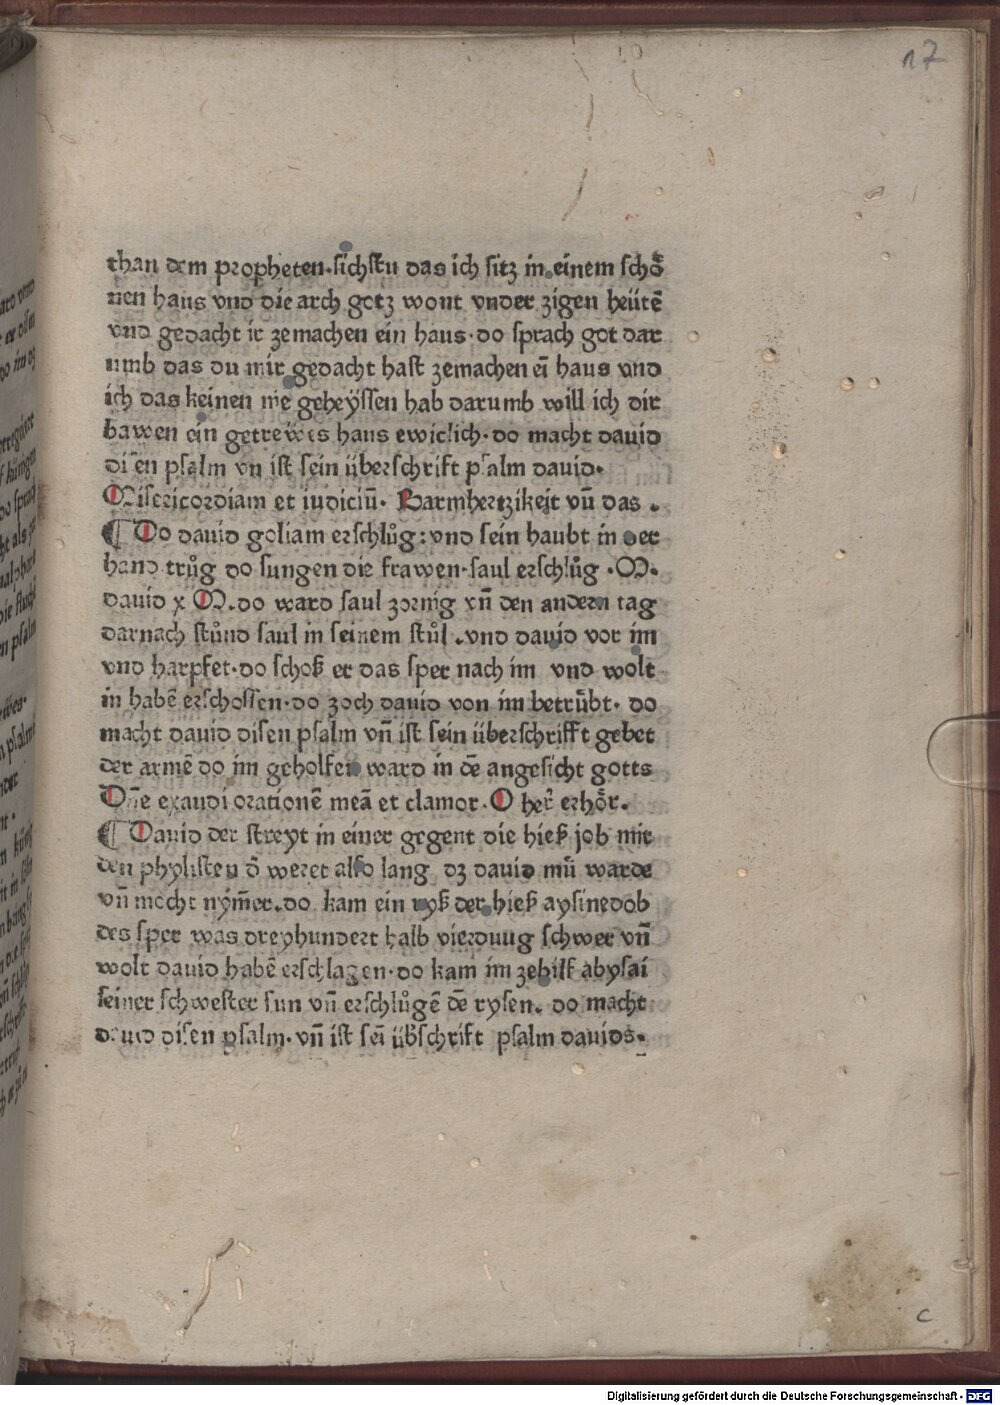 17
than dem propheten·sichstu das ich sitz in einem schö
nen haus vnd die arch gotz wont vnder zigen heütē
vnd gedacht ir zemachen ein haus·do sprach got dar
umb das du mir gedacht hast zemachen eī haus vnd
ich das keinen nie geheÿssen hab darumb will ich dir
bawen ein getrewes haus ewiclich·do macht dauid
disen psalm vn ist sein überschrift psalm dauid·
Misericordiam et iudiciū· Barmhertzikeit vn̄ das .
¶ Do dauid goliam erschlůg:vnd sein haubt in der
hand trůg do sungen die frawen·saul erschlůg ·M·
dauid x M.do ward saul zornig vn̄ den andern tag
darnach stůnd saul in seinem stůl .vnd dauid vor im
vnd harpfet·do schoß er das sper nach im vnd wolt
in habē erschossen·do zoch dauid von im betrůbt· do
macht dauid disen psalm vn̄ ist sein überschrifft gebet
der armē do im geholfen ward in dē angesicht gotts
Dn̄e exaudi orationē meā et clamor·O her̄ erhőr.
¶ Dauid der streyt in einer gegent die hieß job mit
den phylisten ð weret also lang dz dauid mü warde
vn̄ mocht nym̄er.do kam ein ryß der hieß aysinedob
des sper was dreyhundert halb vierduug schwer vn̄
wolt dauid habē erschlagen·do kam im zehilf abysai
seiner schwester sun vn̄ erschlůgē dē rysen. do macht
dauid disen psalm·vn̄ ist seī üb̄schrift psalm dauids·
c
Digitalisierung gefördert durch die Deutsche Forschungsgemeinschaft - DFG